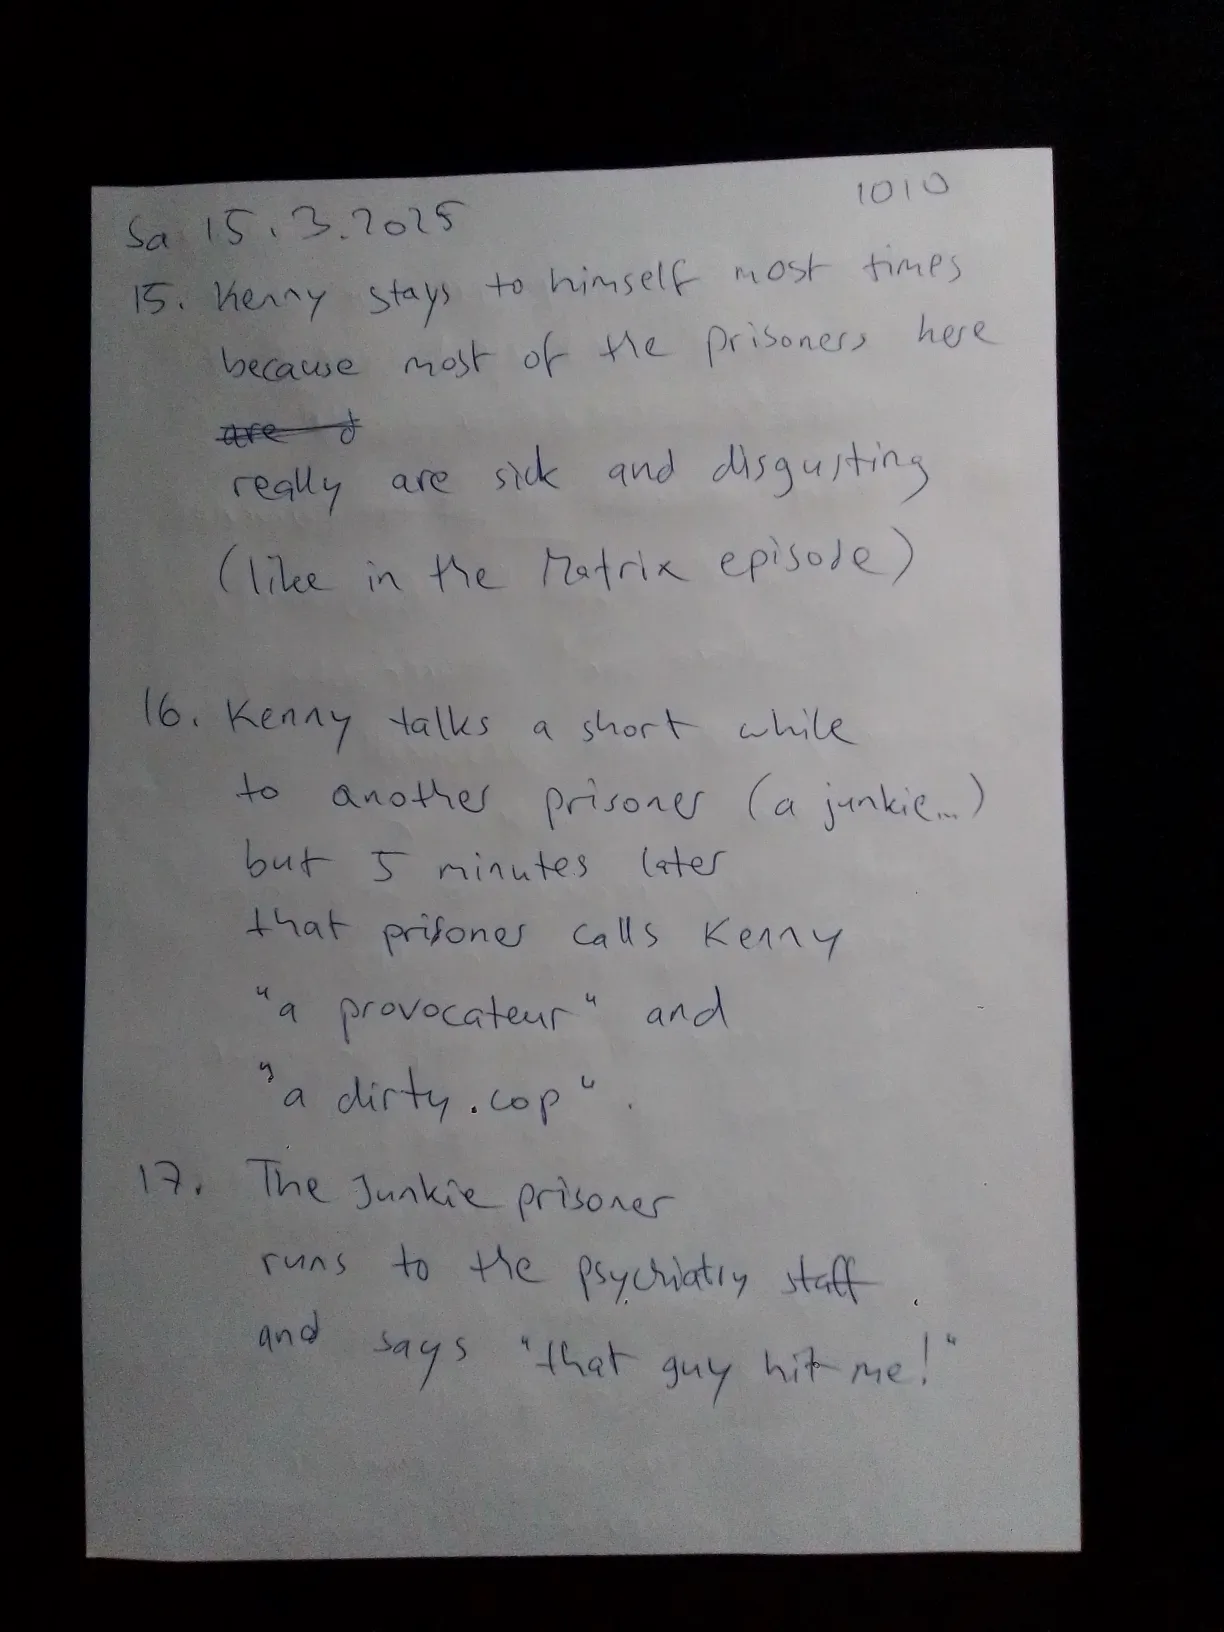 1010
Sa 15.3.2025
15. Kenny stays to himself most times
because most of the prisoners here
are d
really are sick and disgusting
(like in the Matrix episode)
16. Kenny talks a short while
to another prisoner (a junkie...)
but 5 minutes later
that prisoner calls Kenny
"a provocateur" and
"a dirty cop".
17. The Junkie prisoner
runs to the psychiatry staff
and says "that guy hit me!"